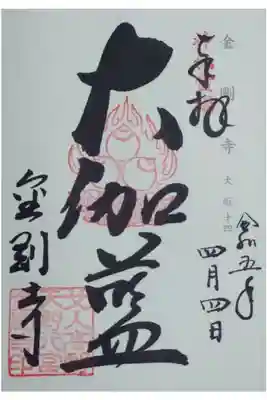 金剛寺 大阪十四
奉拝
令和五年
四月四日
大伽藍
金剛寺